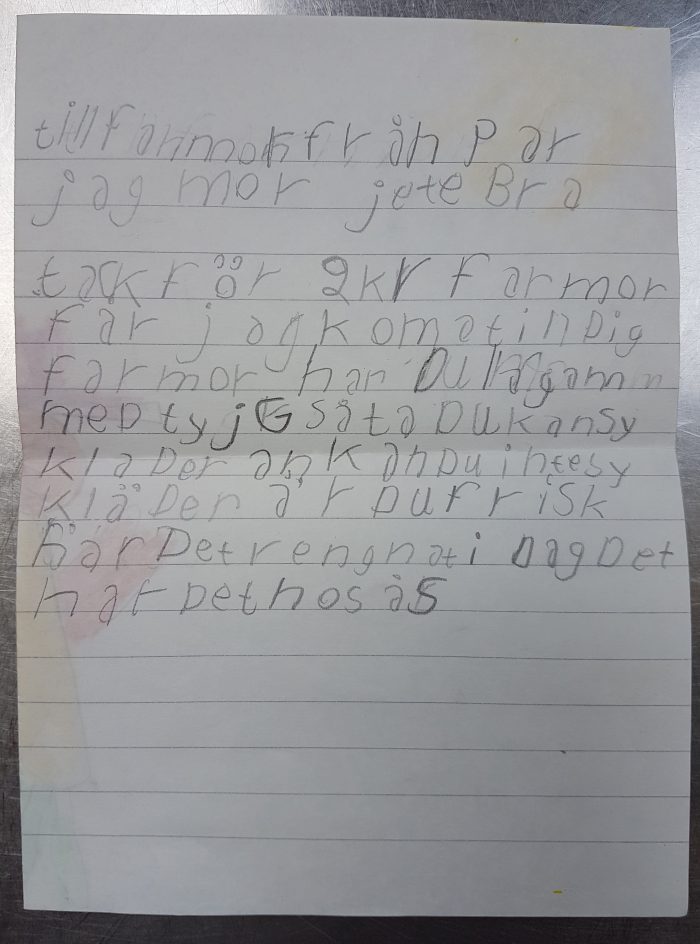 till farmor från Pär
jag mor jete Bra
tack för 2kr farmor
får jag koma till Dig
farmor har Du
meD tyjG så ta Du kan sy
klaDer än kan Du inte sy
kläDer är Du frisk
här Det rengnat i Dag Det
har Det hos ås